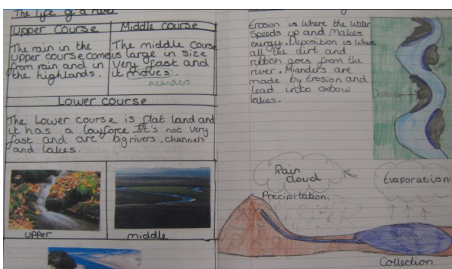 The life of a river
Upper Course
The rain in the
upper course comes
from rain and in
the highlands.
Middle Course
The middle course
is large in size
very fast and
it moves.
meanders
Lower course
The Lower course is flat land and
it has a low force It's not very
fast and are big rivers, channels
and lakes.
upper
middle
Erosion is where the water
speeds up and makes
energy. Deposition is where
all the dirt and
ribbon goes from the
river. Mianders are
made by erosion and
lead into oxbow
lakes.
Rain
cloud
Evaporation
Precipitation.
Collection